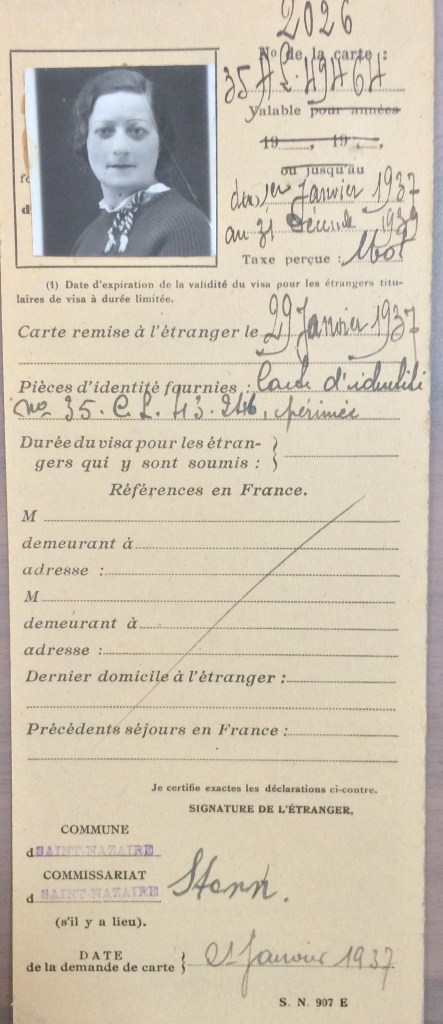 2026
No de la carte :
35 AZ. 49464
Valable pour années
19 , 19 ,
ou jusqu'au
du 1er Janvier 1937
au 31 Décembre 1939
Taxe perçue :
(1) Date d'expiration de la validité du visa pour les étrangers titu-
laires de visa à durée limitée.
Carte remise à l'étranger le 29 Janvier 1937
Pièces d'identité fournies : Carte d'identité
No 35. C L. 43. 246, périmée
Durée du visa pour les étran-
gers qui y sont soumis :
Références en France.
M
demeurant à
adresse :
M
demeurant à
adresse :
Dernier domicile à l'étranger :
Précédents séjours en France :
Je certifie exactes les déclarations ci-contre.
SIGNATURE DE L'ÉTRANGER,
COMMUNE
d SAINT-NAZAIRE
COMMISSARIAT
d SAINT-NAZAIRE
Stern.
(s'il y a lieu).
DATE
de la demande de carte Janvier 1937
S. N. 907 E